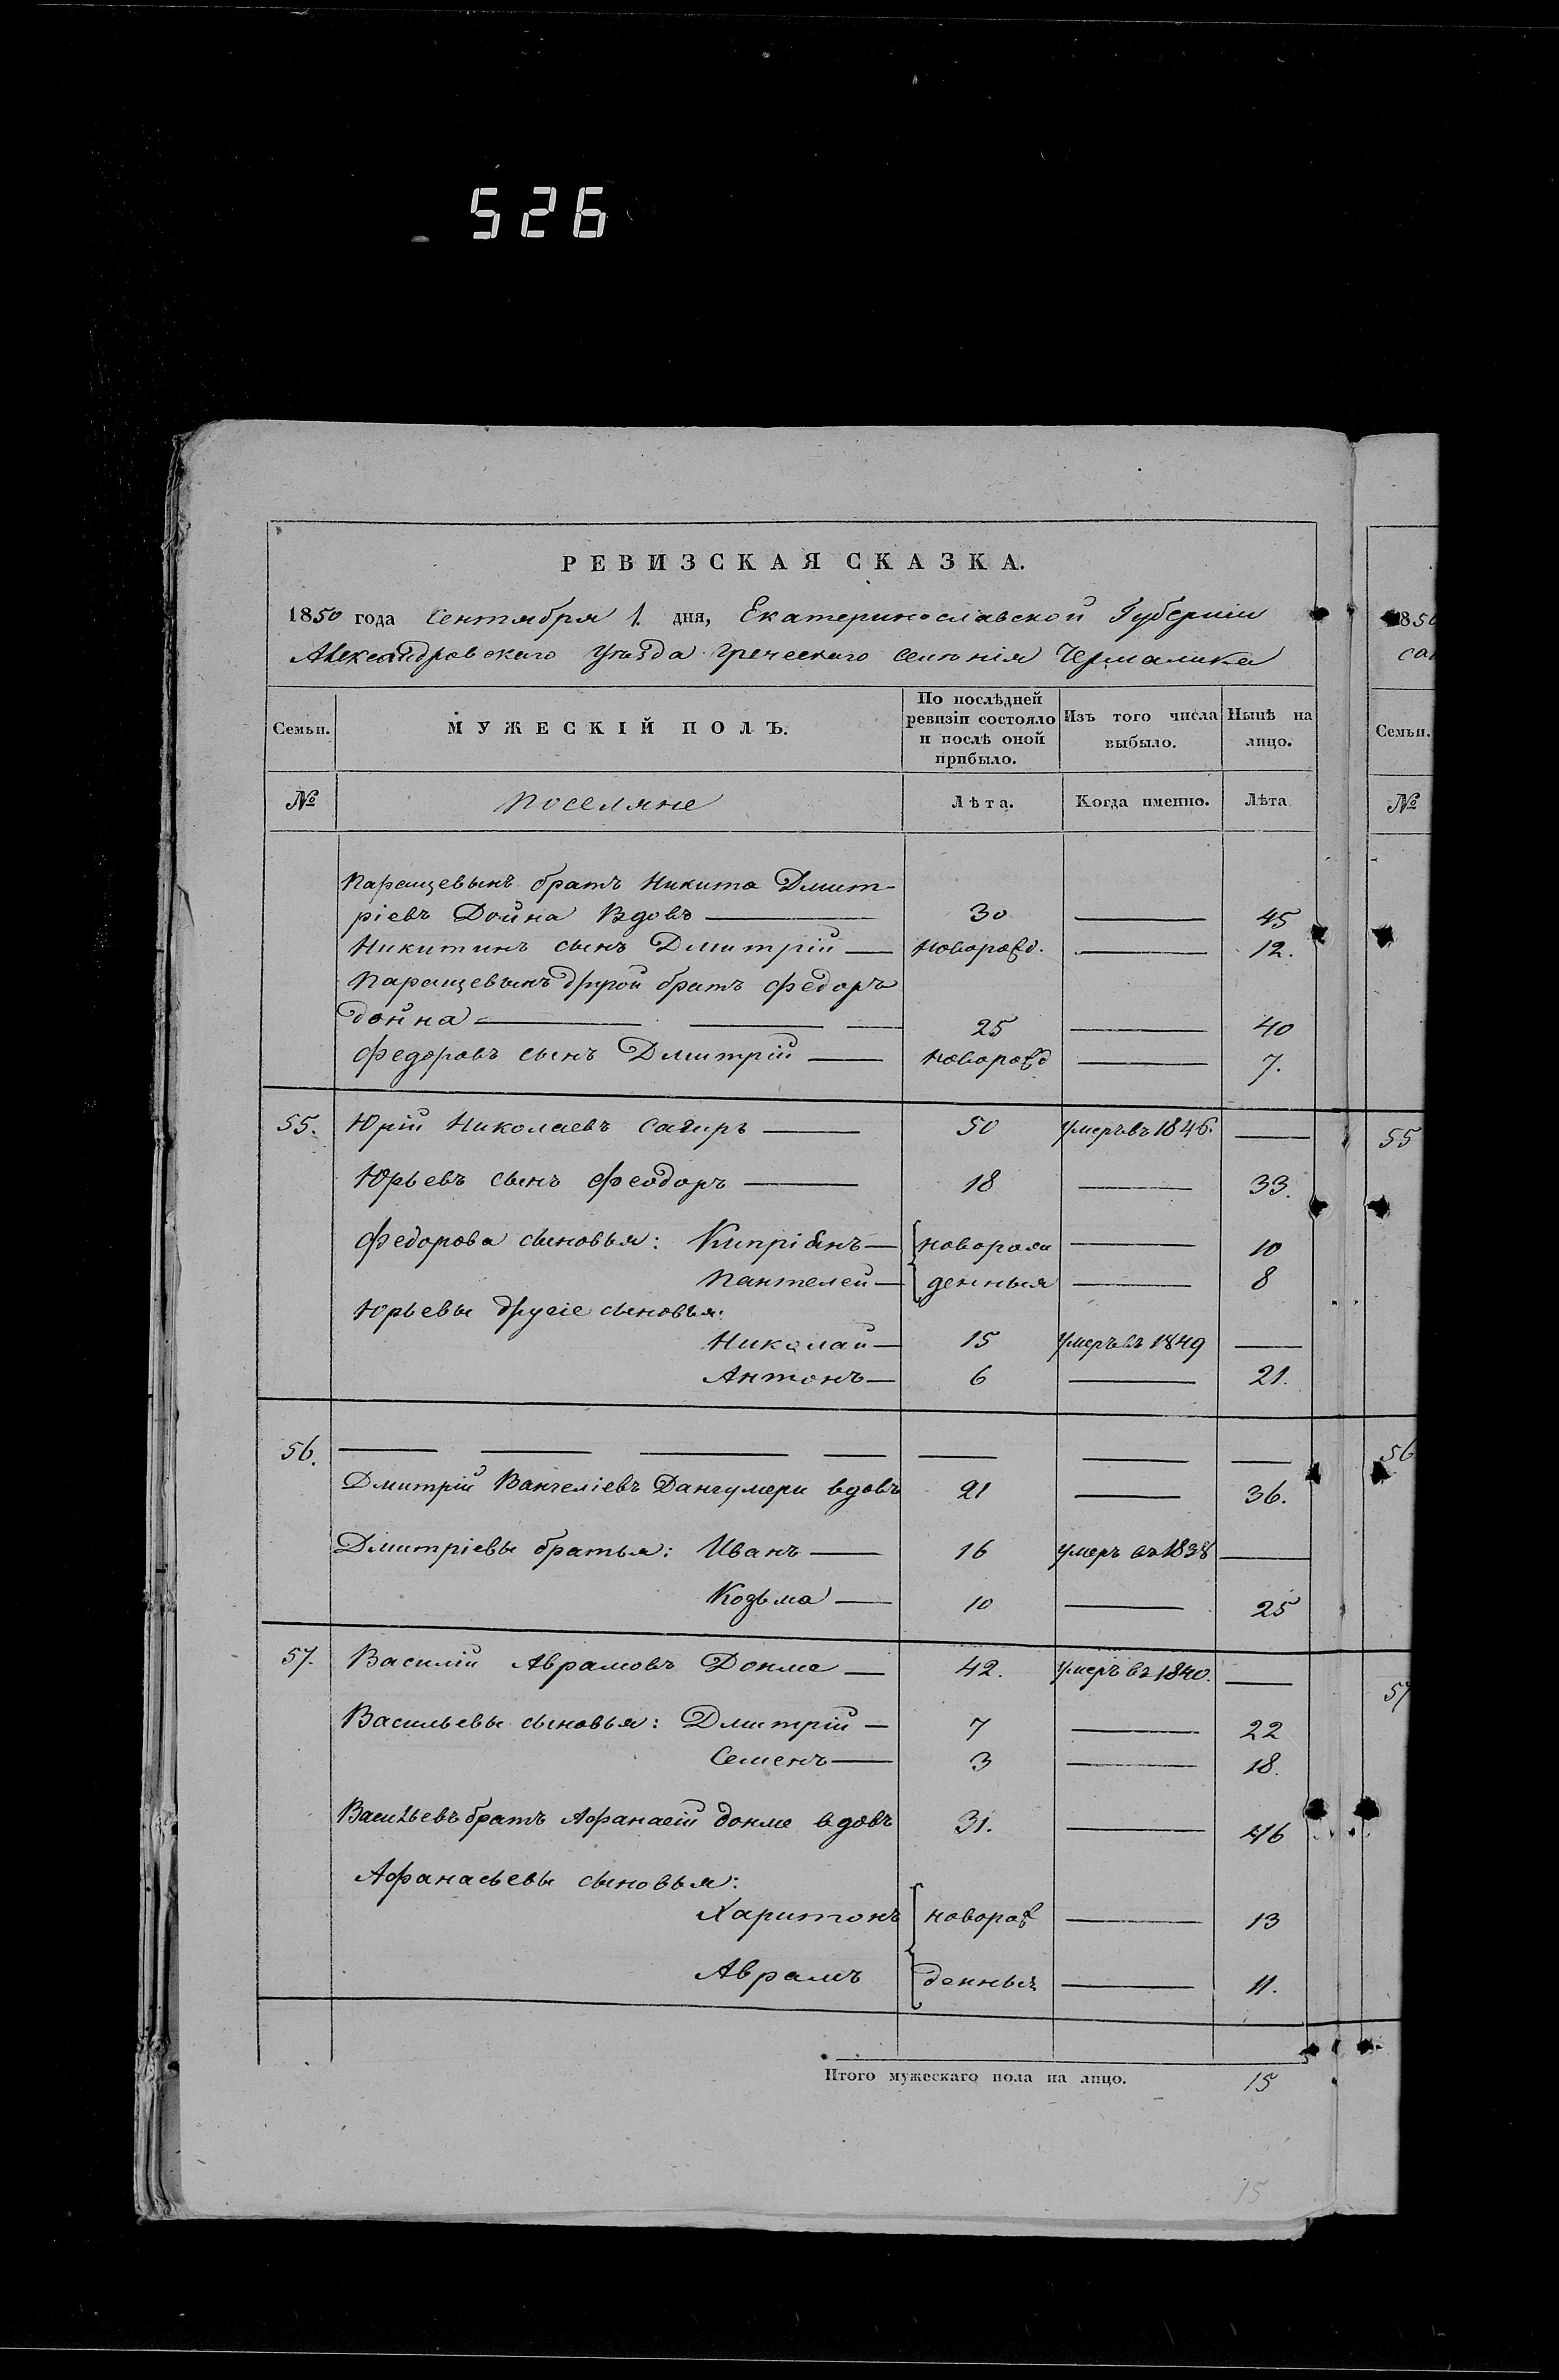 526
РЕВИЗСКАЯ СКАЗКА.
1850 года Сентября 1. дня, Екатеринославской Губерніи
Александровскаго Уѣзда Греческаго селенія Чермалика
Семьи. МУЖЕСКІЙ ПОЛЪ. По послѣдней ревизіи состояло и послѣ оной прибыло. Изъ того числа выбыло. Нынѣ на лицо.
№ Поселяне Лѣта. Когда именно. Лѣта
Паращевинъ братъ Никита Дмит-
ріевъ Дойна Вдовъ — 30 — 45
Никитинъ сынъ Дмитрій — Новорожд. — 12.
Паращевинъ другой братъ Федоръ
Дойна — 25 — 40
Федоровъ сынъ Дмитрій — Новорожд — 7.
55. Юрій Николаевъ Сагиръ — 50 умеръ въ 1846. —
Юрьевъ сынъ Феодоръ — 18 — 33.
Федорова сыновья: Кипріянъ — новорож — 10
Пантелей — денныя — 8
Юрьевы другіе сыновья:
Николай — 15 Умеръ въ 1849 —
Антонъ — 6 — 21.
56. — — — — — — —
Дмитрій Вангеліевъ Дангумери вдовъ 21 — 36.
Дмитріевы братья: Иванъ — 16 умеръ въ 1838 —
Козьма — 10 — 25
57. Василій Аврамовъ Донме — 42. умеръ въ 1840. —
Васильевы сыновья: Дмитрій — 7 — 22
Семенъ — 3 — 18.
Васильевъ братъ Афанасій Донме вдовъ 31. — 46
Афанасьевы сыновья:
Харитонъ новорож — 13
Аврамъ денныя — 11.
Итого мужескаго пола на лицо. 15
15
850
са
Семьи.
№
55
56
57